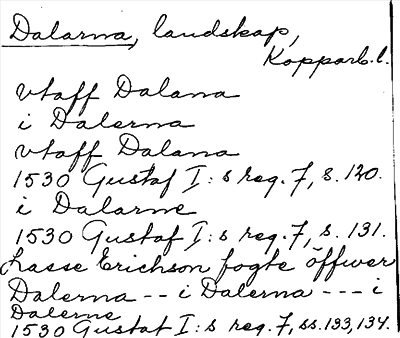 Dalarna, landskap,
Kopparb.l.
vtaff Dalana
i Dalerna
vtaff Dalana
1530 Gustaf I:s reg. 7, s. 120.
i Dalarne
1530 Gustaf I:s reg. 7, s. 131.
Lasse Erichson fogte öffwer
Dalerna -- i Dalerna --- i
Dalerne
1530 Gustaf I:s reg. 7, ss. 133, 134.